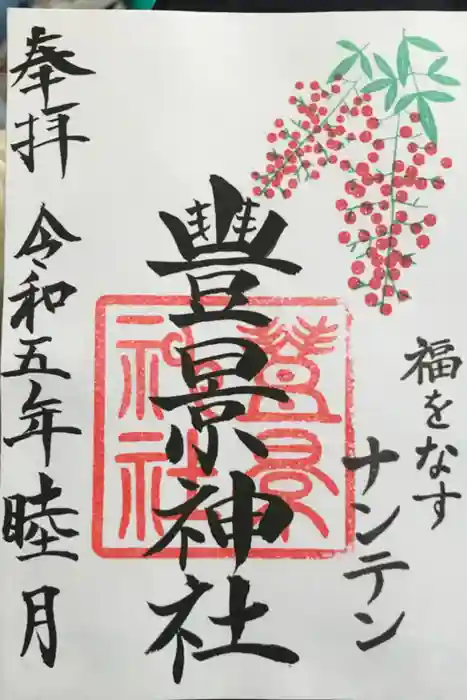 福をなす
ナンテン
豊景神社
豊景神社
奉拝
令和五年睦月